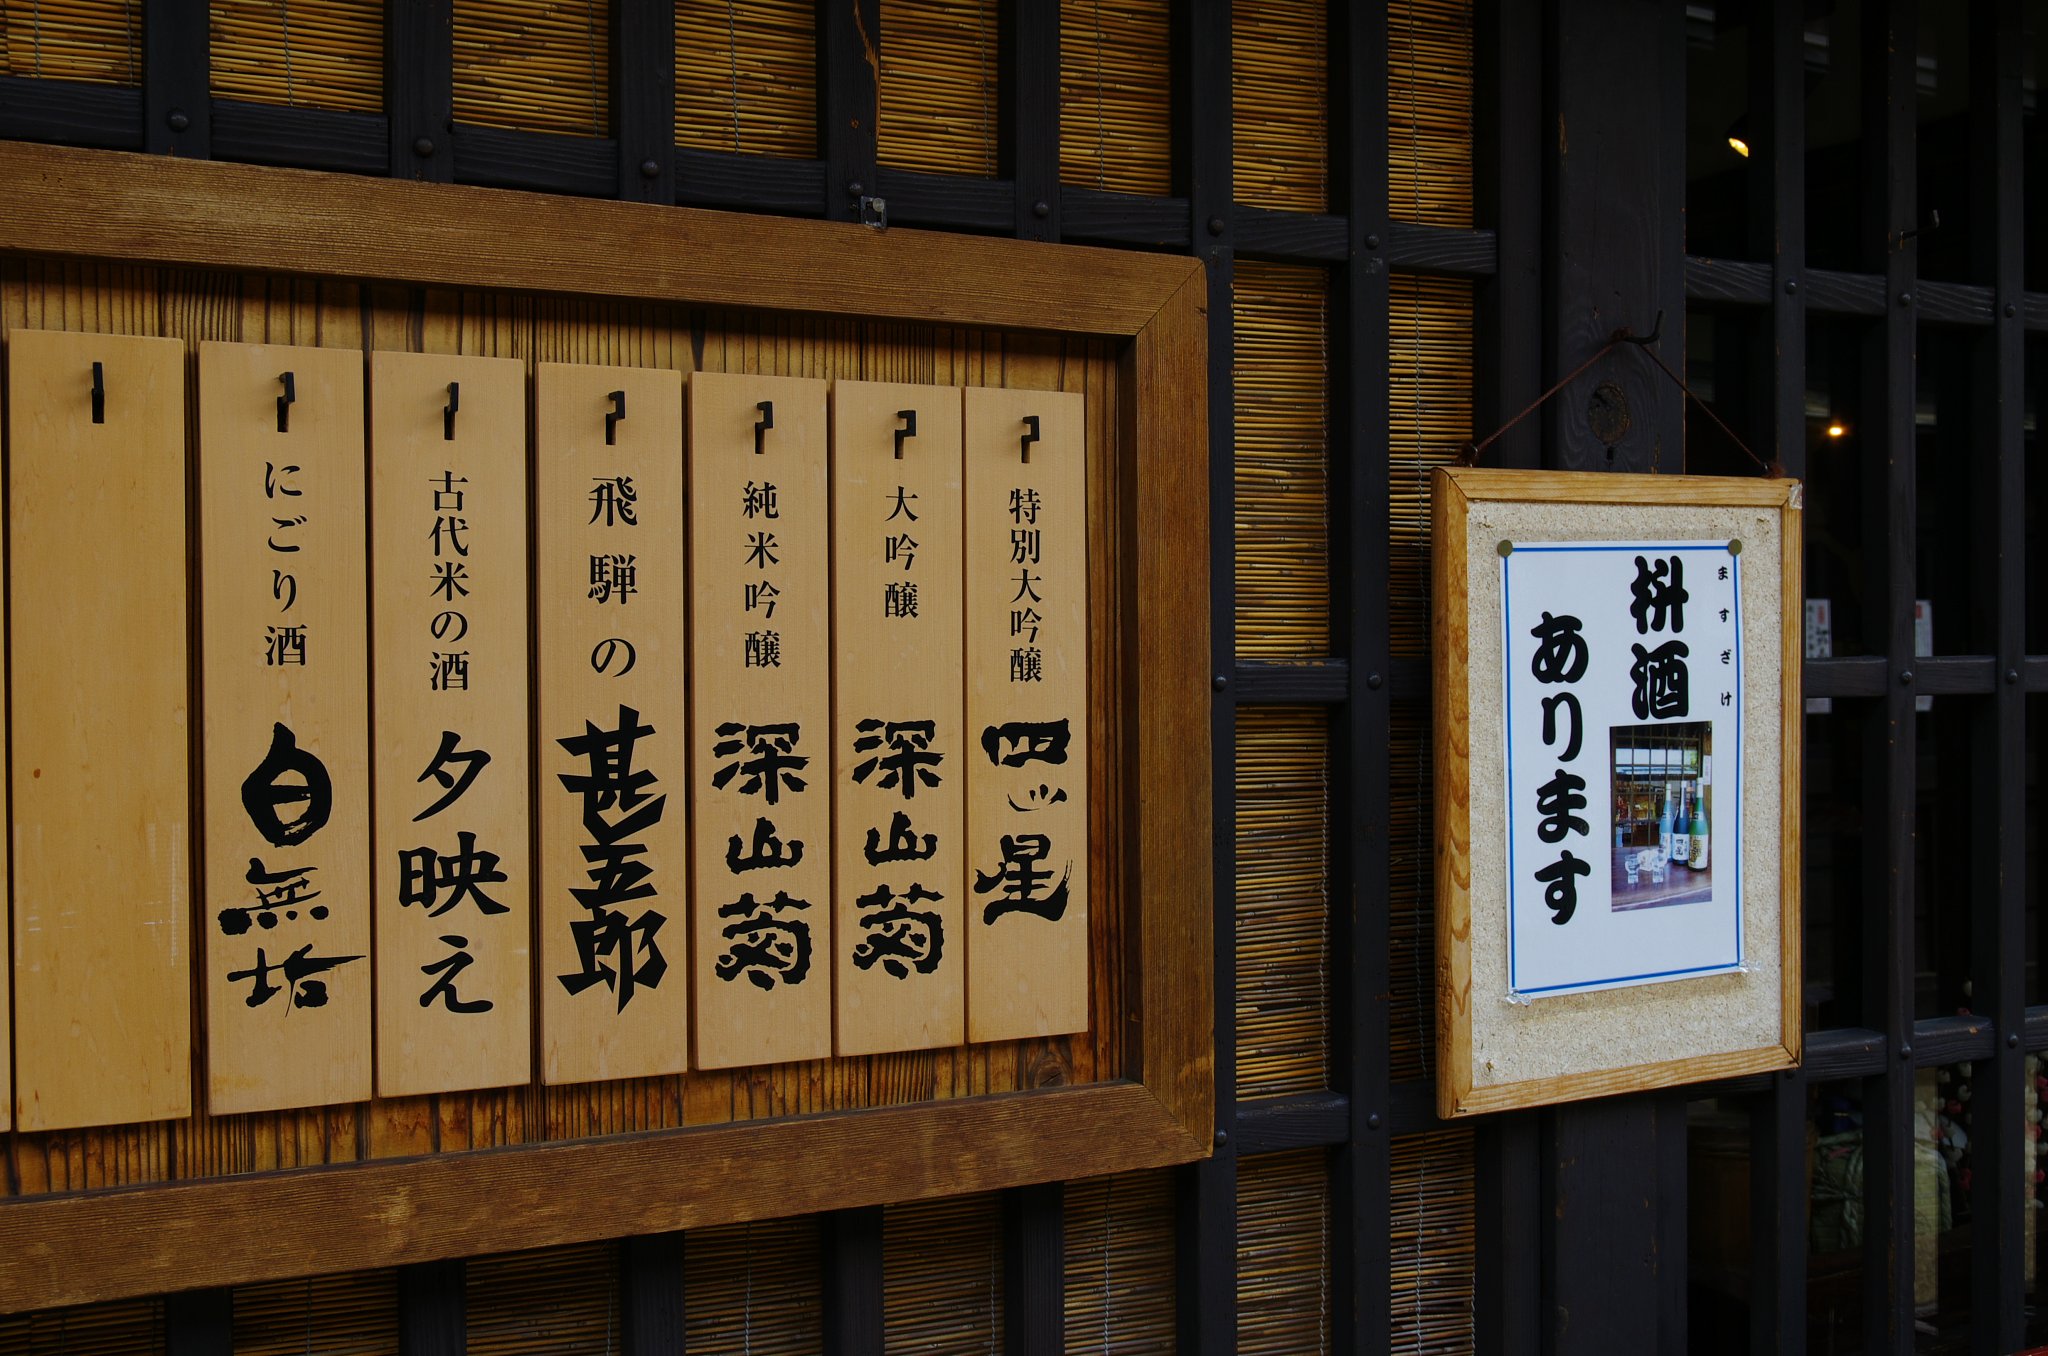 特別大吟醸 四ツ星
大吟醸 深山菊
純米吟醸 深山菊
飛騨の甚五郎
古代米の酒 夕映え
にごり酒 白無垢
ますざけ
枡酒
あります